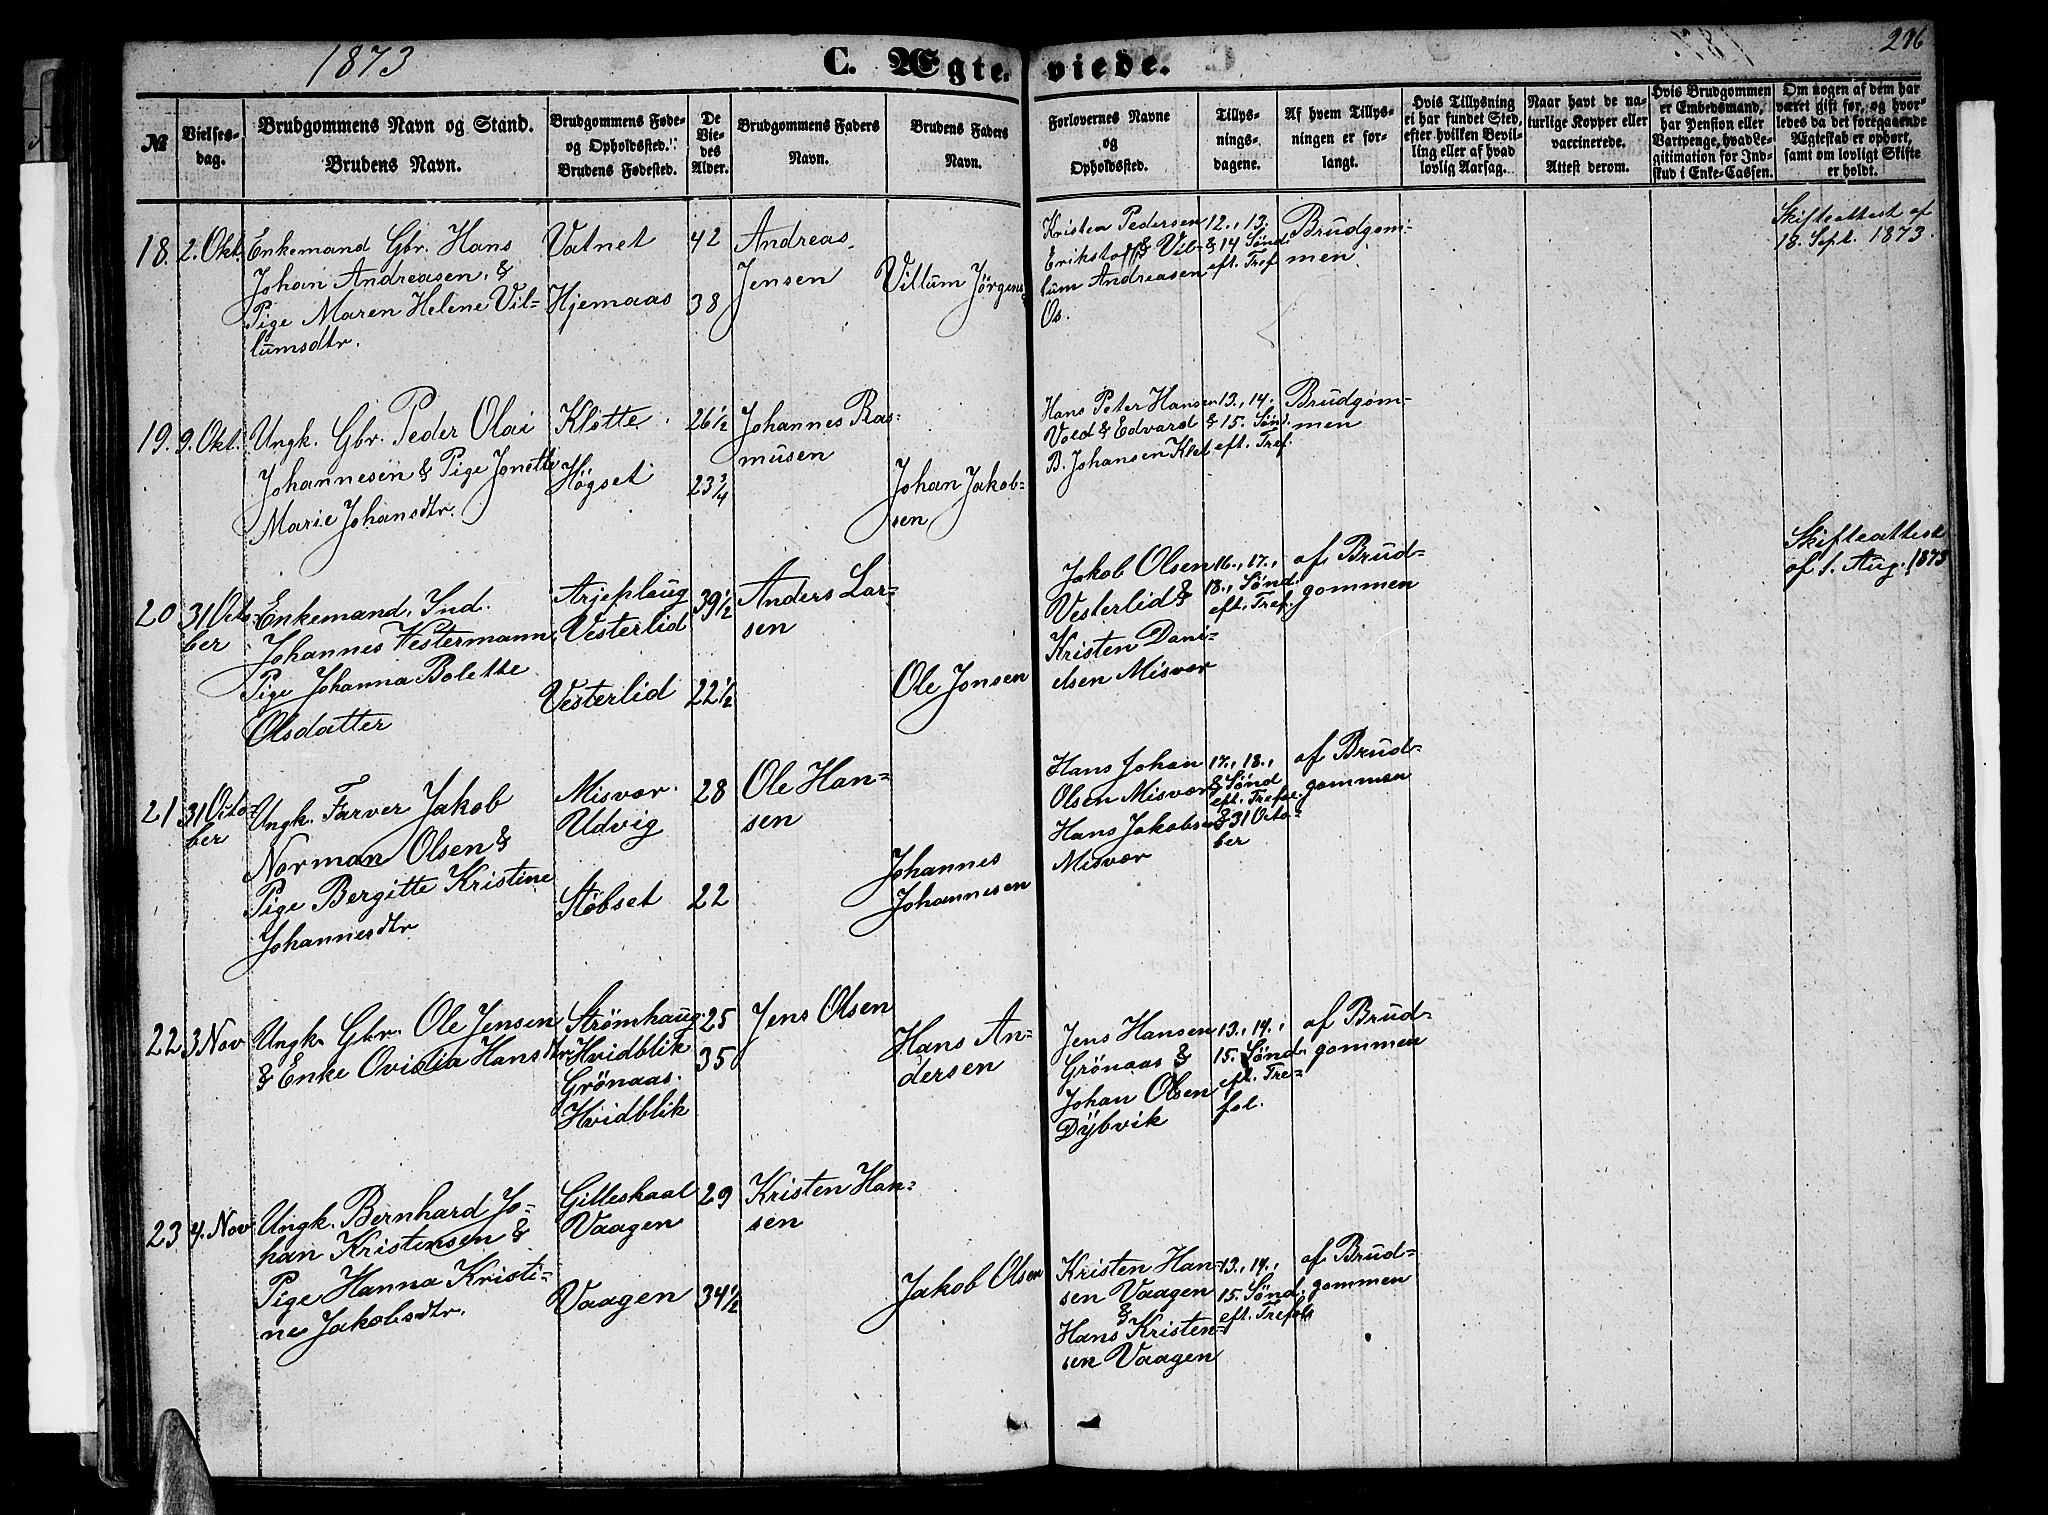 1873
C. Ægte-viede.
276
№
Vielses-
dag.
Brudgommens Navn og Stand.
Brudens Navn.
Brudgommens Føde-
og Opholdssted.
Brudens Fødested.
De
Vie-
des
Alder.
Brudgommens Faders
Navn.
Brudens Faders
Navn.
Forlovernes Navne
og
Opholdssted.
Tillys-
nings-
dagene.
Af hvem Tillys-
ningen er for-
langt.
Hvis Tillysning
ei har fundet Sted,
efter hvilken Bevil-
ling eller af hvad
lovlig Aarsag.
Naar havt de na-
turlige Kopper eller
vaccinerede.
Attest derom.
Hvis Brudgommen
er Embedsmand,
har Pension eller
Vartpenge, hvad Le-
gitimation for Ind-
skud i Enke-Cassen.
Om nogen af dem har
været gift før, og hvor-
ledes da det foregaaende
Ægteskab er ophørt,
samt om lovligt Skifte
er holdt.
18.
2. Okt.
Enkemand Gbr. Hans
Johan Andreasen, &
Pige Maren Helene Vil-
lumsdtr.
Vatnet
Hjemaas
42
38
Andreas
Jensen
Villum Jörgens
Kristen Pedersen
& Vil-
lum Andreasen
Os.
12., 13.
& 14 Sönd.
eft. Tref.
Brudgom-
men
Skifteattest af
18. Sept. 1873.
19.
9. Okt.
Ungk. Gbr. Peder Olai
Johannesen & Pige Jonette
Marie Johansdtr.
Klötte
Högset
26½
23¾
Johannes Ras-
musen
Johan Jakob-
sen
Hans Peter Hansen
Vold & Edvard
B. Johansen Klet
13., 14.
& 15. Sönd.
eft. Tref.
Brudgom-
men
20
31 Octo-
ber
Enkemand, Ind.
Johannes Vestermann,
Pige Johanna Bolette
Olsdatter
Arjeplaug
Vesterlid
Vesterlid
39½
22½
Anders Lar-
sen
Ole Jonsen
Jakob Olsen
Vesterlid &
Kristen Dani-
elsen Misvær
16., 17.,
18., Sönd.
eft. Tref.
af Brud-
gommen
Skifteattest
af 1. Aug. 1873
21
31 Octo-
ber
Ungk. Farver Jakob
Norman Olsen &
Pige Bergitte Kristine
Johannesdtr
Misvær.
Udvig
Stöbset
28
22
Ole Han-
sen
Johannes
Johannesen
Hans Johan
Olsen Misvær
Hans Jakobsen
Misvær
17., 18.,
& Sönd
eft. Trefol.
& 31 Octo-
ber
af Brud-
gommen
22
3 Nov
Ungk. Gbr. Ole Jensen
& Enke Ovidia Hansdtr
Strömhaug
Hvidblik
Grönaas.
Hvidblik
25
35
Jens Olsen
Hans An-
dersen
Jens Hansen
Grönaas &
Johan Olsen
Dÿbvik
13., 14.,
15. Sönd.
eft. Tre-
fol.
af Brud-
gommen
23
4. Nov
Ungk. Bernhard Jo-
han Kristensen &
Pige Hanna Kristi-
ne Jakobsdtr.
Gilleskaal
Vaagen
Vaagen
29
34½
Kristen Han-
sen
Jakob Olsen
Kristen Han-
sen Vaagen
&
Hans Kristen-
sen Vaagen
13., 14.,
15. Sönd.
eft. Trefol.
af Brud-
gommen